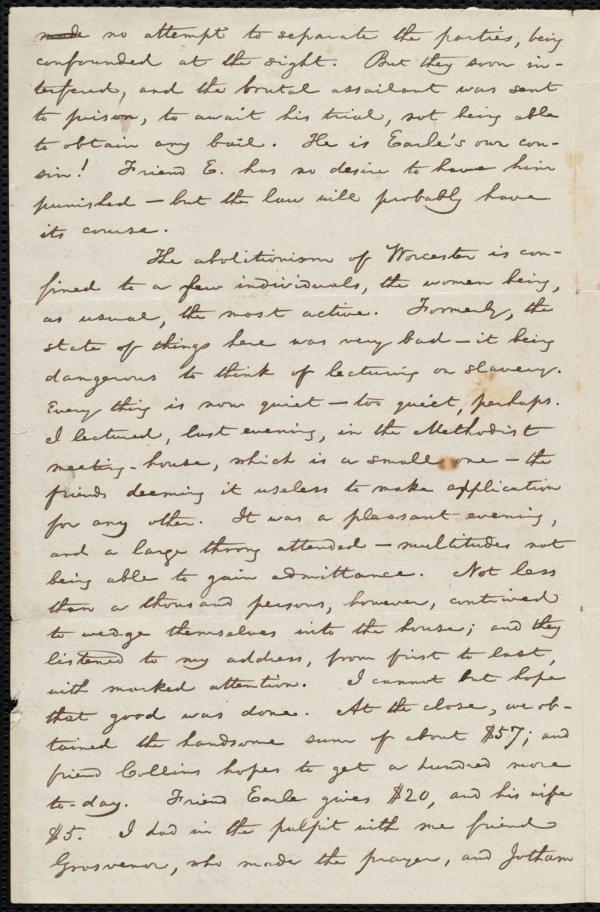 made no attempt to separate the parties, being
confounded at the sight. But they soon in-
terfered, and the brutal assailant was sent
to prison, to await his trial, not being able
to obtain any bail. He is Earle's own cou-
sin! Friend E. has no desire to have him
punished — but the law will probably have
its course.
The abolitionism of Worcester is con-
fined to a few individuals, the women being,
as usual, the most active. Formerly, the
state of things here was very bad — it being
dangerous to think of lecturing on slavery.
Every thing is now quiet — too quiet, perhaps.
I lectured, last evening, in the Methodist
meeting-house, which is a small one — the
friends deeming it useless to make application
for any other. It was a pleasant evening,
and a large throng attended — multitudes not
being able to gain admittance. Not less
than a thousand persons, however, contrived
to wedge themselves into the house; and they
listened to my address, from first to last,
with marked attention. I cannot but hope
that good was done. At the close, we ob-
tained the handsome sum of about $57; and
friend Collins hopes to get a hundred more
to-day. Friend Earle gives $20, and his wife
$5. I had in the pulpit with me friend
Grosvenor, who made the prayer, and Jotham